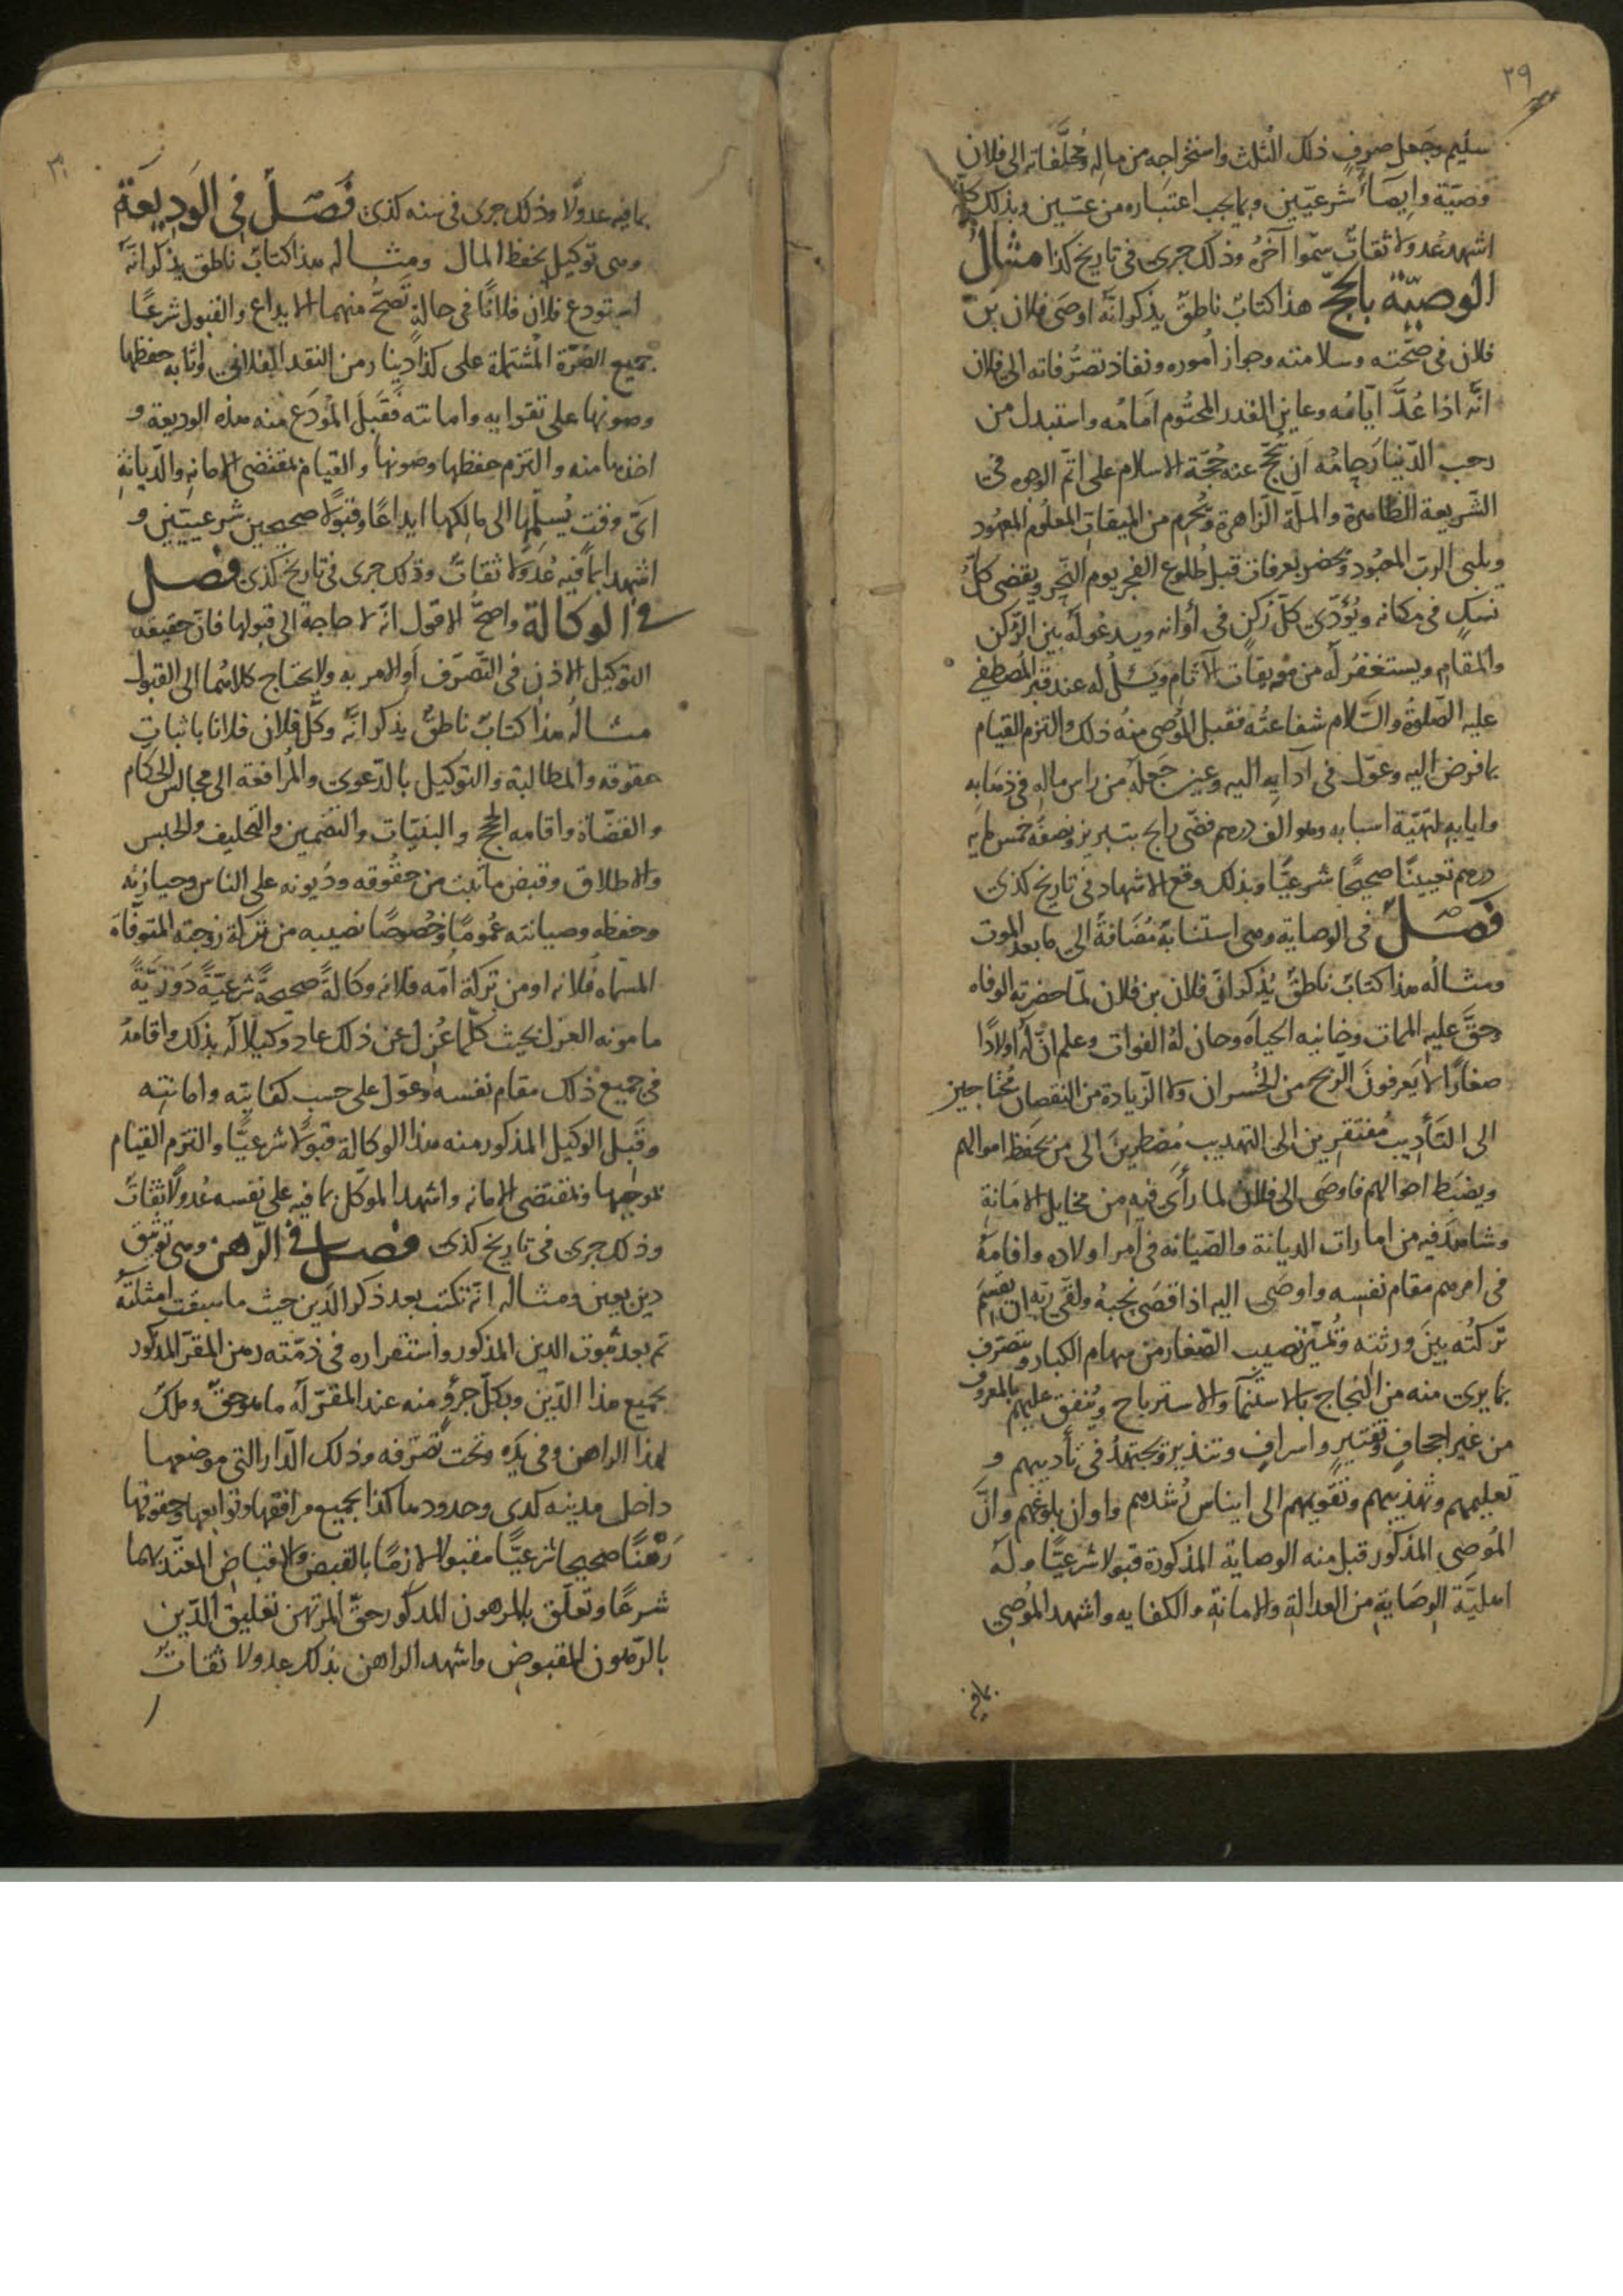 ٢٩
سليم وجعل صرف ذلك الثلث واستخراجه من ماله ومُخلَّفاته الى فلان
وصيّة وايصاءً شرعيّين وبما يجب اعتباره من وبذلك كلّه
اشهد عُدولا ثقات سمّوا آخرُه وذلك جرى فى تاريخ كذا مثال
الوصيّة بالحجّ هذا كتابٌ ناطقٌ يذكر انّه اوصَى فلان بن
فلان فى صحّته وسلامته وجواز اُموره ونفاذ تصرُّفاته الى فلان
انَّه اذا عُدَّ ايّامُه وعاين المقدر المحتُوم اَمَامُه واستبدل من
رحب الدّنيا رجامُه اَن يُحَجّ عنه حُجّة الاسلام على اتمّ الوجوه فى
الشّريعة الطّاهرة والملّة الزّاهرة ويُحرم من الميقات المعلُوم المعهُود
ويلبى الربّ المعبُود ويحضر بعرفات قبل طُلوع الفجر يوم النّحر ويقضى كلّ
نسكٍ فى مكانه ويُؤدّى كلّ رُكنٍ فى أوانه ويدعُو لَه بين الرّكن
والمقام ويستغفرُ لَه من موبقات الآثام ويَسئلُ لَه عند قبر المصطفى
عليه الصّلوةُ والسّلام شفاعتُه فقبل المُوصى منهُ ذلك والتزم القيام
بما فوض اليه وعوّل فى آدابه اليه وعيّن جعلَه من راس ماله فى ذهابه
وايابه لتهيّة اسبابه وهو الف درهم فضّى رابح بتبريز ونصفُه خمس مايه
درهم تعيينًا صحيحًا شرعيًّا وبذلك وقع الاشهاد فى تاريخ كذى
فصل فى الوصاية وهى استنابةٌ مُضَافةً الى ما بعد الموت
ومثالُه هذا كتابٌ ناطقٌ يُذكر انَّ فلان بن فلان لمّا حضرته الوفاه
وحقَّ عليه الممات وخانيه الحياه وحان لهُ الفوات وعلم انّ لَه اولادًا
صغارًا لا يَعرفونَ الرّبح من الخُسران ولا الزّيادة من النقصان مُحتاجين
الى التأديب مُفتقرين الى التهديب مُضطرينَ الى من يحفظ اموالهم
ويضبَط احوالهم فاوصَى الى فلان لما رأى فيه من مخايل الامانة
وشاهد فيه من امارات الديانة والصّيانه فى امر اولاده واقامهُ
فى امرهم مقام نفسه واوصَى اليه اذا قضَى نحبهُ ولقى ربّه ان يقسم
تركتُه بينَ ورثته ويُميّز نصيب الصّغار من سهام الكبار ويتصرّف
بما يرى منه من النجاح بالاستنماء والاسترباح ويُنفق عليهم بالمعروف
من غير اجحافٍ وتقتير واسرافٍ وتبذير ويجتهدُ فى تأديبهم و
تعليمهم وتهذيبهم وتقويمهم الى ايناس رُشدهم واوان بلوغهم وانّ
المُوصى المذكور قبل منه الوصاية المذكورة قبولا شرعيًّا وله
اهليّة الوصَاية من العدالة والامانة والكفايه واشهد المُوصى
بما فيه
٣٠
بما فيه عدولًا وذلك جرى فى سنه كذى فَصْلٌ فِى الوَدِيعَة
وهى توكيل بحفظ المال ومثاله هذا كتابٌ ناطقٌ يذكر انّه
استودع فلان فلانًا فى حالةٍ تَصحُّ منهما الايداع والقبول شرعًا
جميع الصّرّة المُشتملة على كذا دينار من النقد الفلانى واثابه حفظها
وصونها على تقوايه وامانته فقَبلَ المُودَع منه هذه الوديعة و
اخذها منه والتزم حفظها وصونها والقيام بمقتضى الامانه والدّيانة
اىّ وقت يُسلّمها الى مالكها ايداعًا وقبُولا صحيحين شرعيّين و
اشهدا بما فيه عُدولا ثقات وذلك جرى فى تاريخ كذى فصل
فى الوكالة واصحّ الاقول انّه لا حاجة الى قبولها فانّ حقيقه
التوكيل الاذن فى التّصرّف اَو الامر به ولا يحتاج كلاهُما الى القبول
مثاله هذا كتابٌ ناطقٌ يذكر انّه وكّل فلان فلانا باثبات
حقوقه والمطالبة والتوكيل بالدّعوى والمُرافعة الى مجالس الحكام
والقضّاة واقامه الحجج والبيّنات والتضمين والتحليف والحبس
والاطلاق وقبض ما ثبت من حقُوقه ودُيونه على الناس وحيازته
وحفظه وصيانته عُمومًا وخُصوصًا نصيبه من تركة زوجته المتوفّاه
المسمّاه فُلانه او من تركة اُمّه فلانه وكالةً صحيحةً شرعيّةً دَوريّةً
مامونه العزل بحيث كلّما عُزل عن ذلك عاد وكيلا لَه بذلك واقامهُ
فى جميع ذلك مقام نفسه وعوّل على حسب كفايته وامانته
وقَبل الوكيل المذكور منه هذا الوكالة قبولا شرعيًّا والتزم القيام
بموجبها وبمقتضى الامانه واشهد الموكّل بما فيه على نفسه عُدولًا ثقاتً
وذلك جرى فى تاريخ كذى فصل فى الرّهن وهى توثيق
دينٍ بعين ومثاله انّه تكتب بعد ذكر الدّين حيث ما سبقت امثلته
ثم بعد ثبوت الدين المذكور واستقراره فى ذمّته رهن المقرّ المذكور
بجميع هذا الدّين وبكلّ جزءٍ منه عند المقرّ لَه ما هو حقٌّ وملكٌ
لهذا الراهن وفى يَدِه وتحت تصرّفه وذلك الدّار التى موضعها
داخل مدينه كدى وحدودها كذا بجميع مرافقها وتوابعها وحقوقها
رَهنًا صحيحا شرعيًّا مقبولا لازمًا بالقبض والاقباض المعتدّ بهما
شرعًا وتعلّق بالمرهون المذكور حقّ المرتهن تعليق الدّين
بالرّهون المقبوض واشهد الراهن بذلك عدولا ثقاتٌ